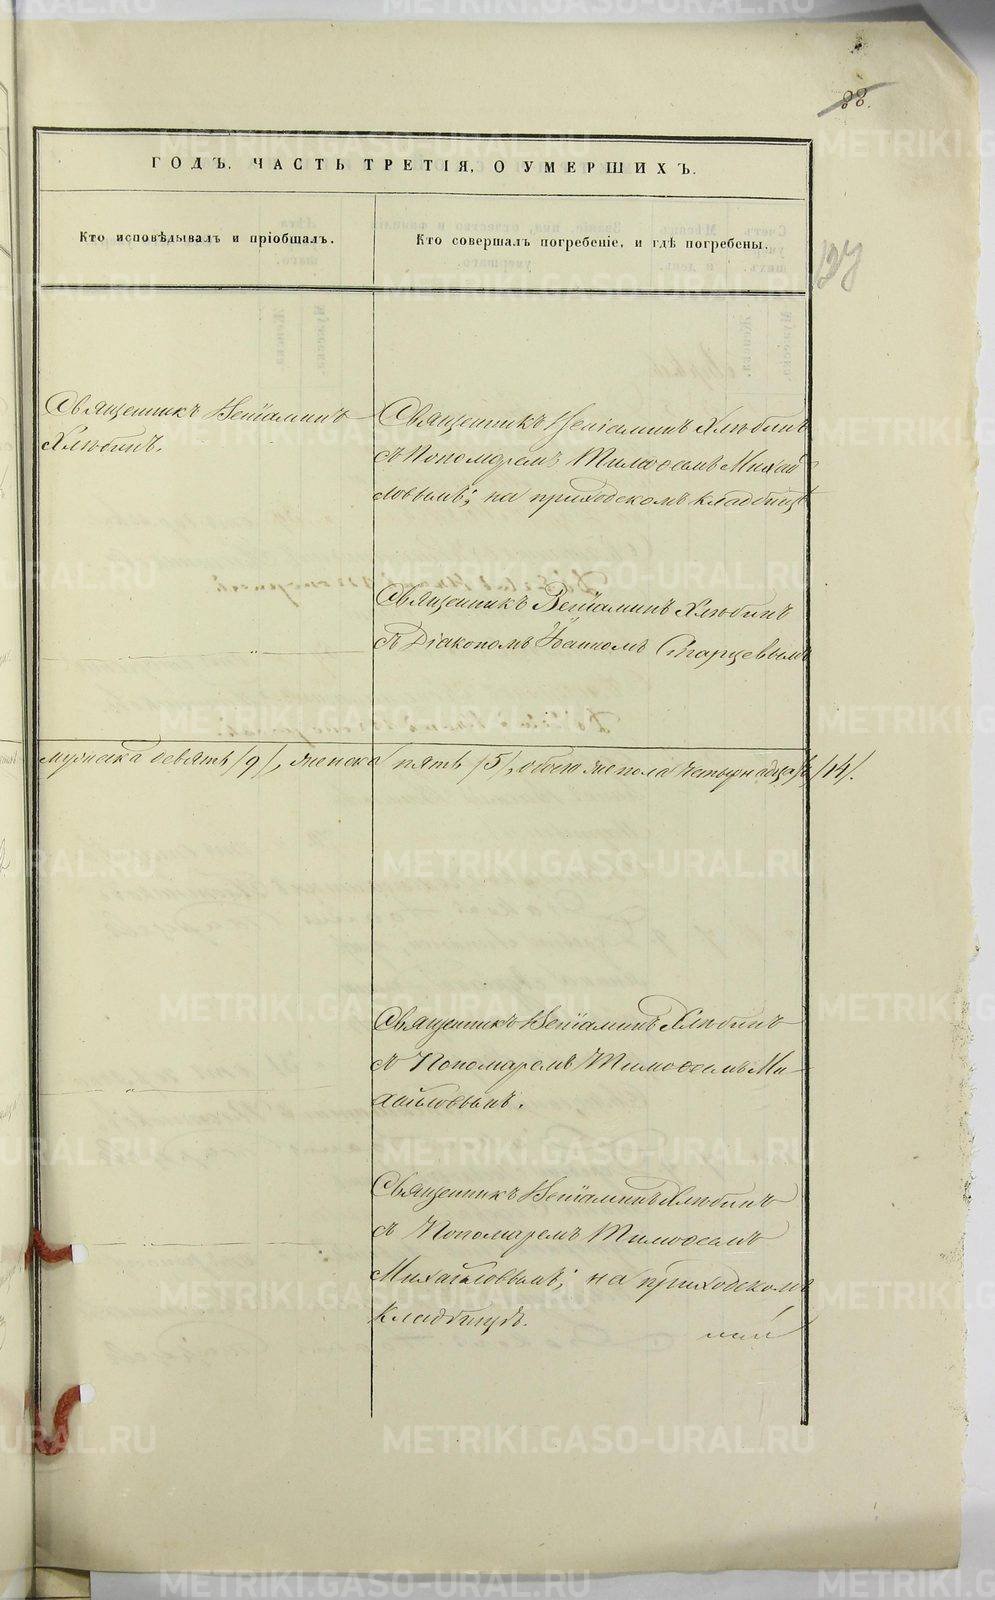 88.
ГОДЪ. ЧАСТЬ ТРЕТІЯ, О УМЕРШИХЪ.
Кто исповѣдывалъ и пріобщалъ.
Кто совершалъ погребеніе, и гдѣ погребены.
127
Священникъ Веніаминъ
Хлѣбинъ.
Священникъ Веніаминъ Хлѣбинъ
съ Пономаремъ Тимоѳеемъ Михай
ловымъ; на приходскомъ кладбищѣ
Священникъ Веніаминъ Хлѣбинъ
съ Діакономъ Іоанномъ Старцевымъ
мужеска девять /9/, женска пять /5/, обоего же пола четырнадцать /14/.
Священникъ Веніаминъ Хлѣбинъ
съ Пономаремъ Тимоѳеемъ Ми-
хайловымъ.
Священникъ Веніаминъ Хлѣбинъ
съ Пономаремъ Тимоѳеемъ
Михайловымъ; на приходскомъ
кладбищѣ.
METRIKI.GASO-URAL.RU